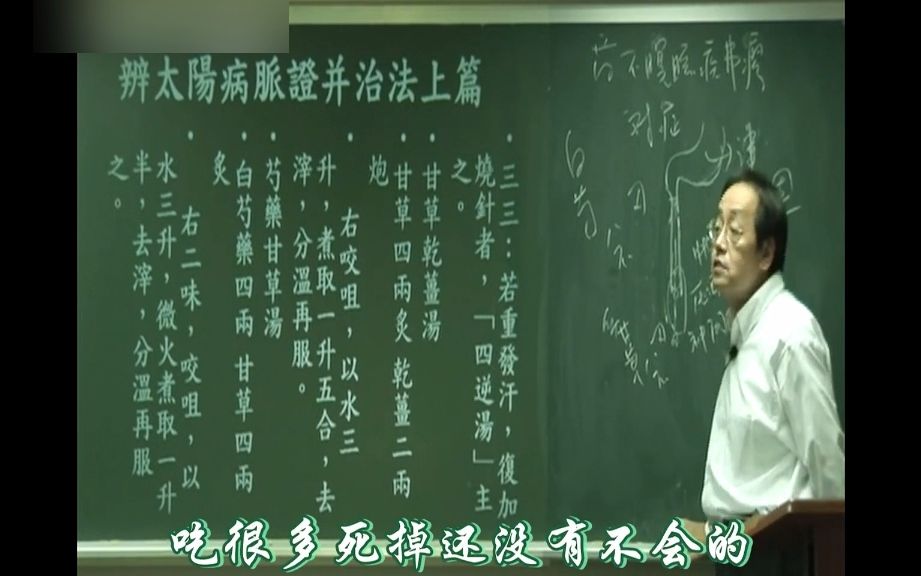 辨太陽病脈證并治法上篇
• 三三：若重發汗，復加
燒針者，「四逆湯」主
之。
• 甘草乾薑湯
• 甘草四兩炙 乾薑二兩
炮
• 右咬咀，以水三
升，煮取一升五合，去
滓，分溫再服。
• 芍藥甘草湯
• 白芍藥四兩 甘草四兩
炙
• 右二味，咬咀，以
水三升，微火煮取一升
半，去滓，分溫再服
之。
对症
白芍
吃很多死掉还没有不会的